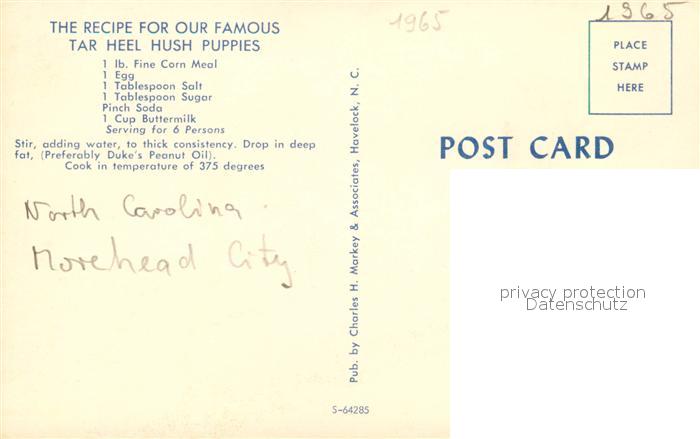 THE RECIPE FOR OUR FAMOUS
TAR HEEL HUSH PUPPIES
1 lb. Fine Corn Meal
1 Egg
1 Tablespoon Salt
1 Tablespoon Sugar
Pinch Soda
1 Cup Buttermilk
Serving for 6 Persons
Stir, adding water, to thick consistency. Drop in deep
fat, (Preferably Duke's Peanut Oil).
Cook in temperature of 375 degrees
North Carolina.
Morehead City
Pub. by Charles H. Markey & Associates, Havelock, N. C.
S-64285
1965
1965
PLACE
STAMP
HERE
POST CARD
privacy protection
Datenschutz